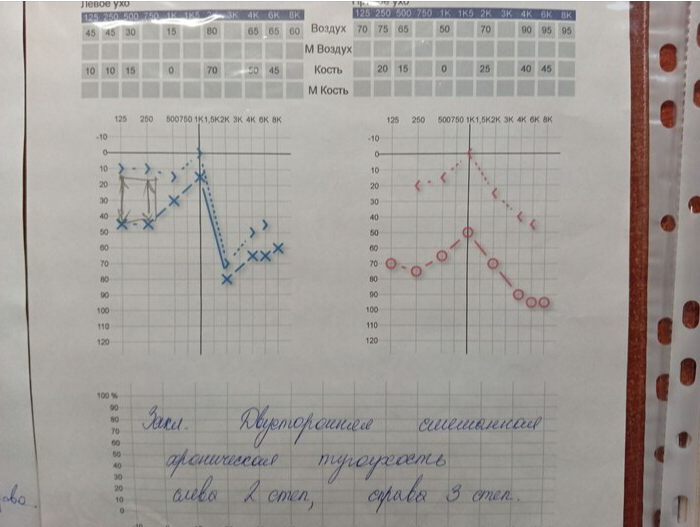 Левое ухо
125 250 500 750 1K 1K5 2K 3K 4K 6K 8K
45 45 30 15 80 65 65 60
10 10 15 0 70 50 45
Воздух
М Воздух
Кость
М Кость
ухо
125 250 500 750 1K 1K5 2K 3K 4K 6K 8K
70 75 65 50 70 90 95 95
20 15 0 25 40 45
125 250 500 750 1K 1,5K 2K 3K 4K 6K 8K
-10
0
10
20
30
40
50
60
70
80
90
100
110
120
125 250 500 750 1K 1,5K 2K 3K 4K 6K 8K
-10
0
10
20
30
40
50
60
70
80
90
100
110
120
100 %
90
80
70
60
50
40
30
20
10
0
Закл. Двусторонняя смешанная
хроническая тугоухость
слева 2 степ, справа 3 степ.